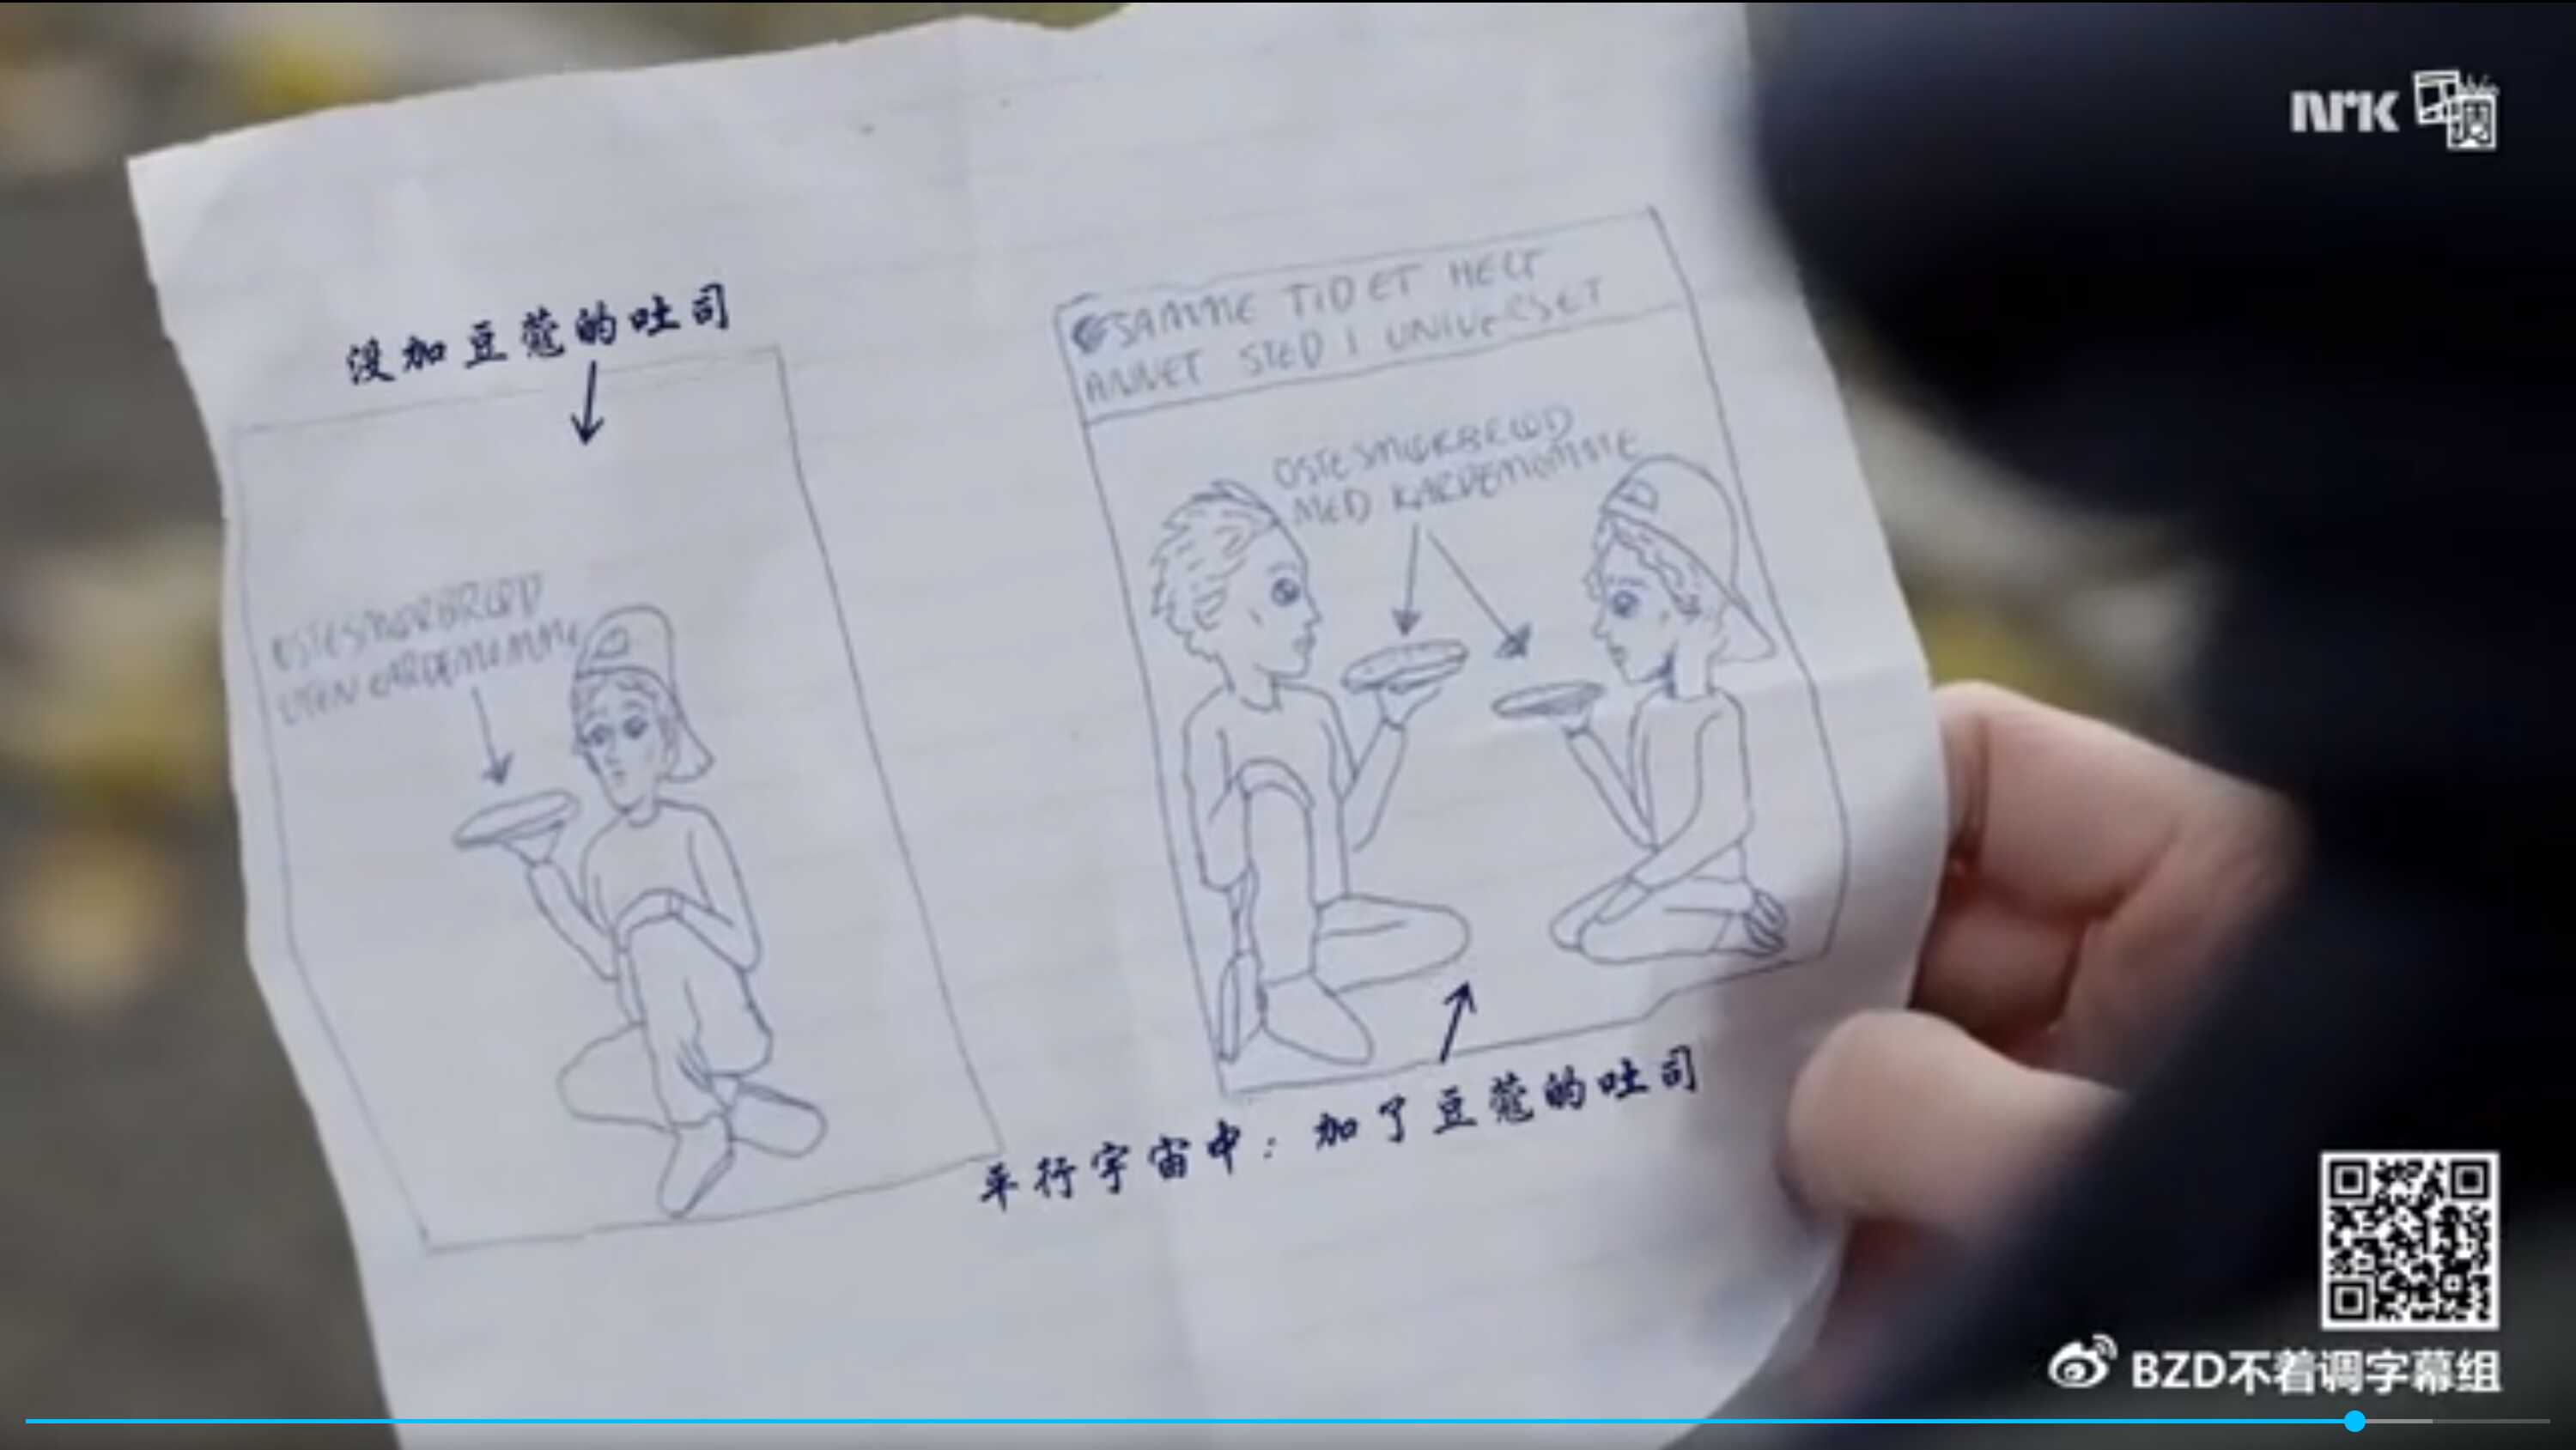 nrk
不着调
没加豆蔻的吐司
OSTESMØRBRØD
UTEN KARDEMOMME
SAMME TID ET HELT
ANNET STED I UNIVERSET
OSTESMØRBRØD
MED KARDEMOMME
平行宇宙中：加了豆蔻的吐司
BZD不着调字幕组